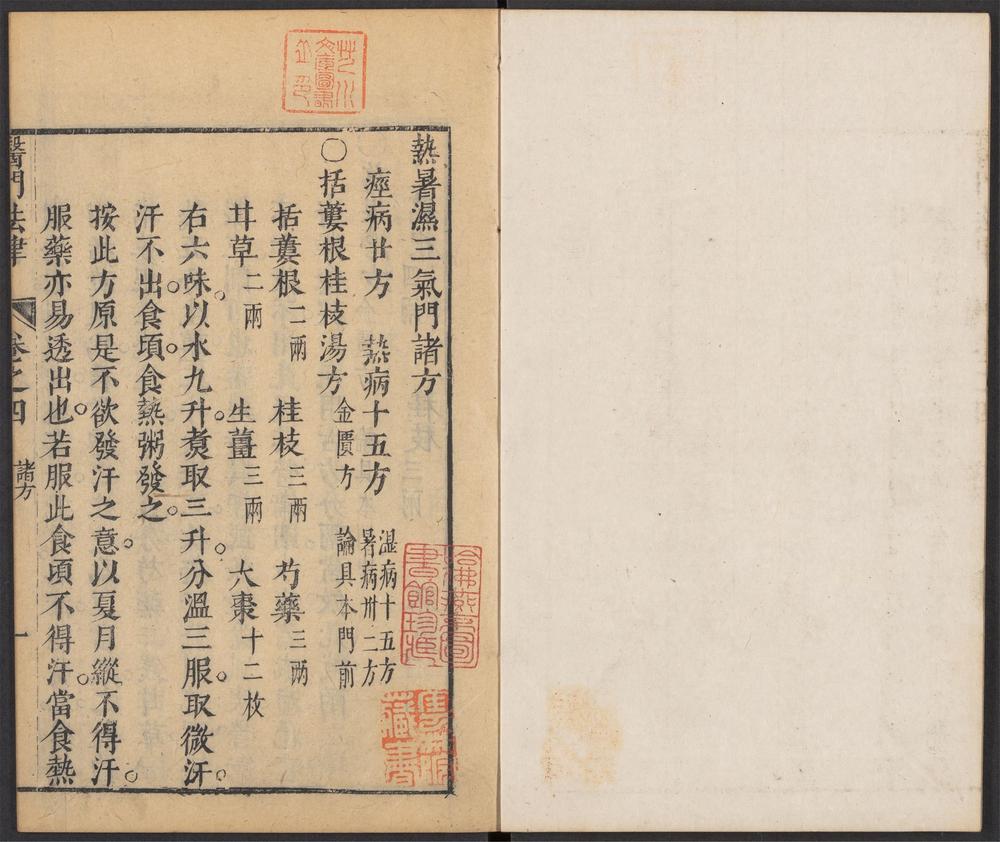 熱暑濕三氣門諸方
痙病廿方　熱病十五方　濕病十五方
暑病卅二方
○括蔞根桂枝湯方　金匱方　論具本門前
括蔞根二兩　桂枝三兩　芍藥三兩
甘草二兩　生薑三兩　大棗十二枚
右六味。以水九升。煑取三升。分溫三服。取微汗。
汗不出。食頃。食熱粥發之。
按此方原是不欲發汗之意。以夏月縱不得汗。
服藥亦易透出也。若服此食頃不得汗。當食熱
醫門法律　卷之四　諸方　一